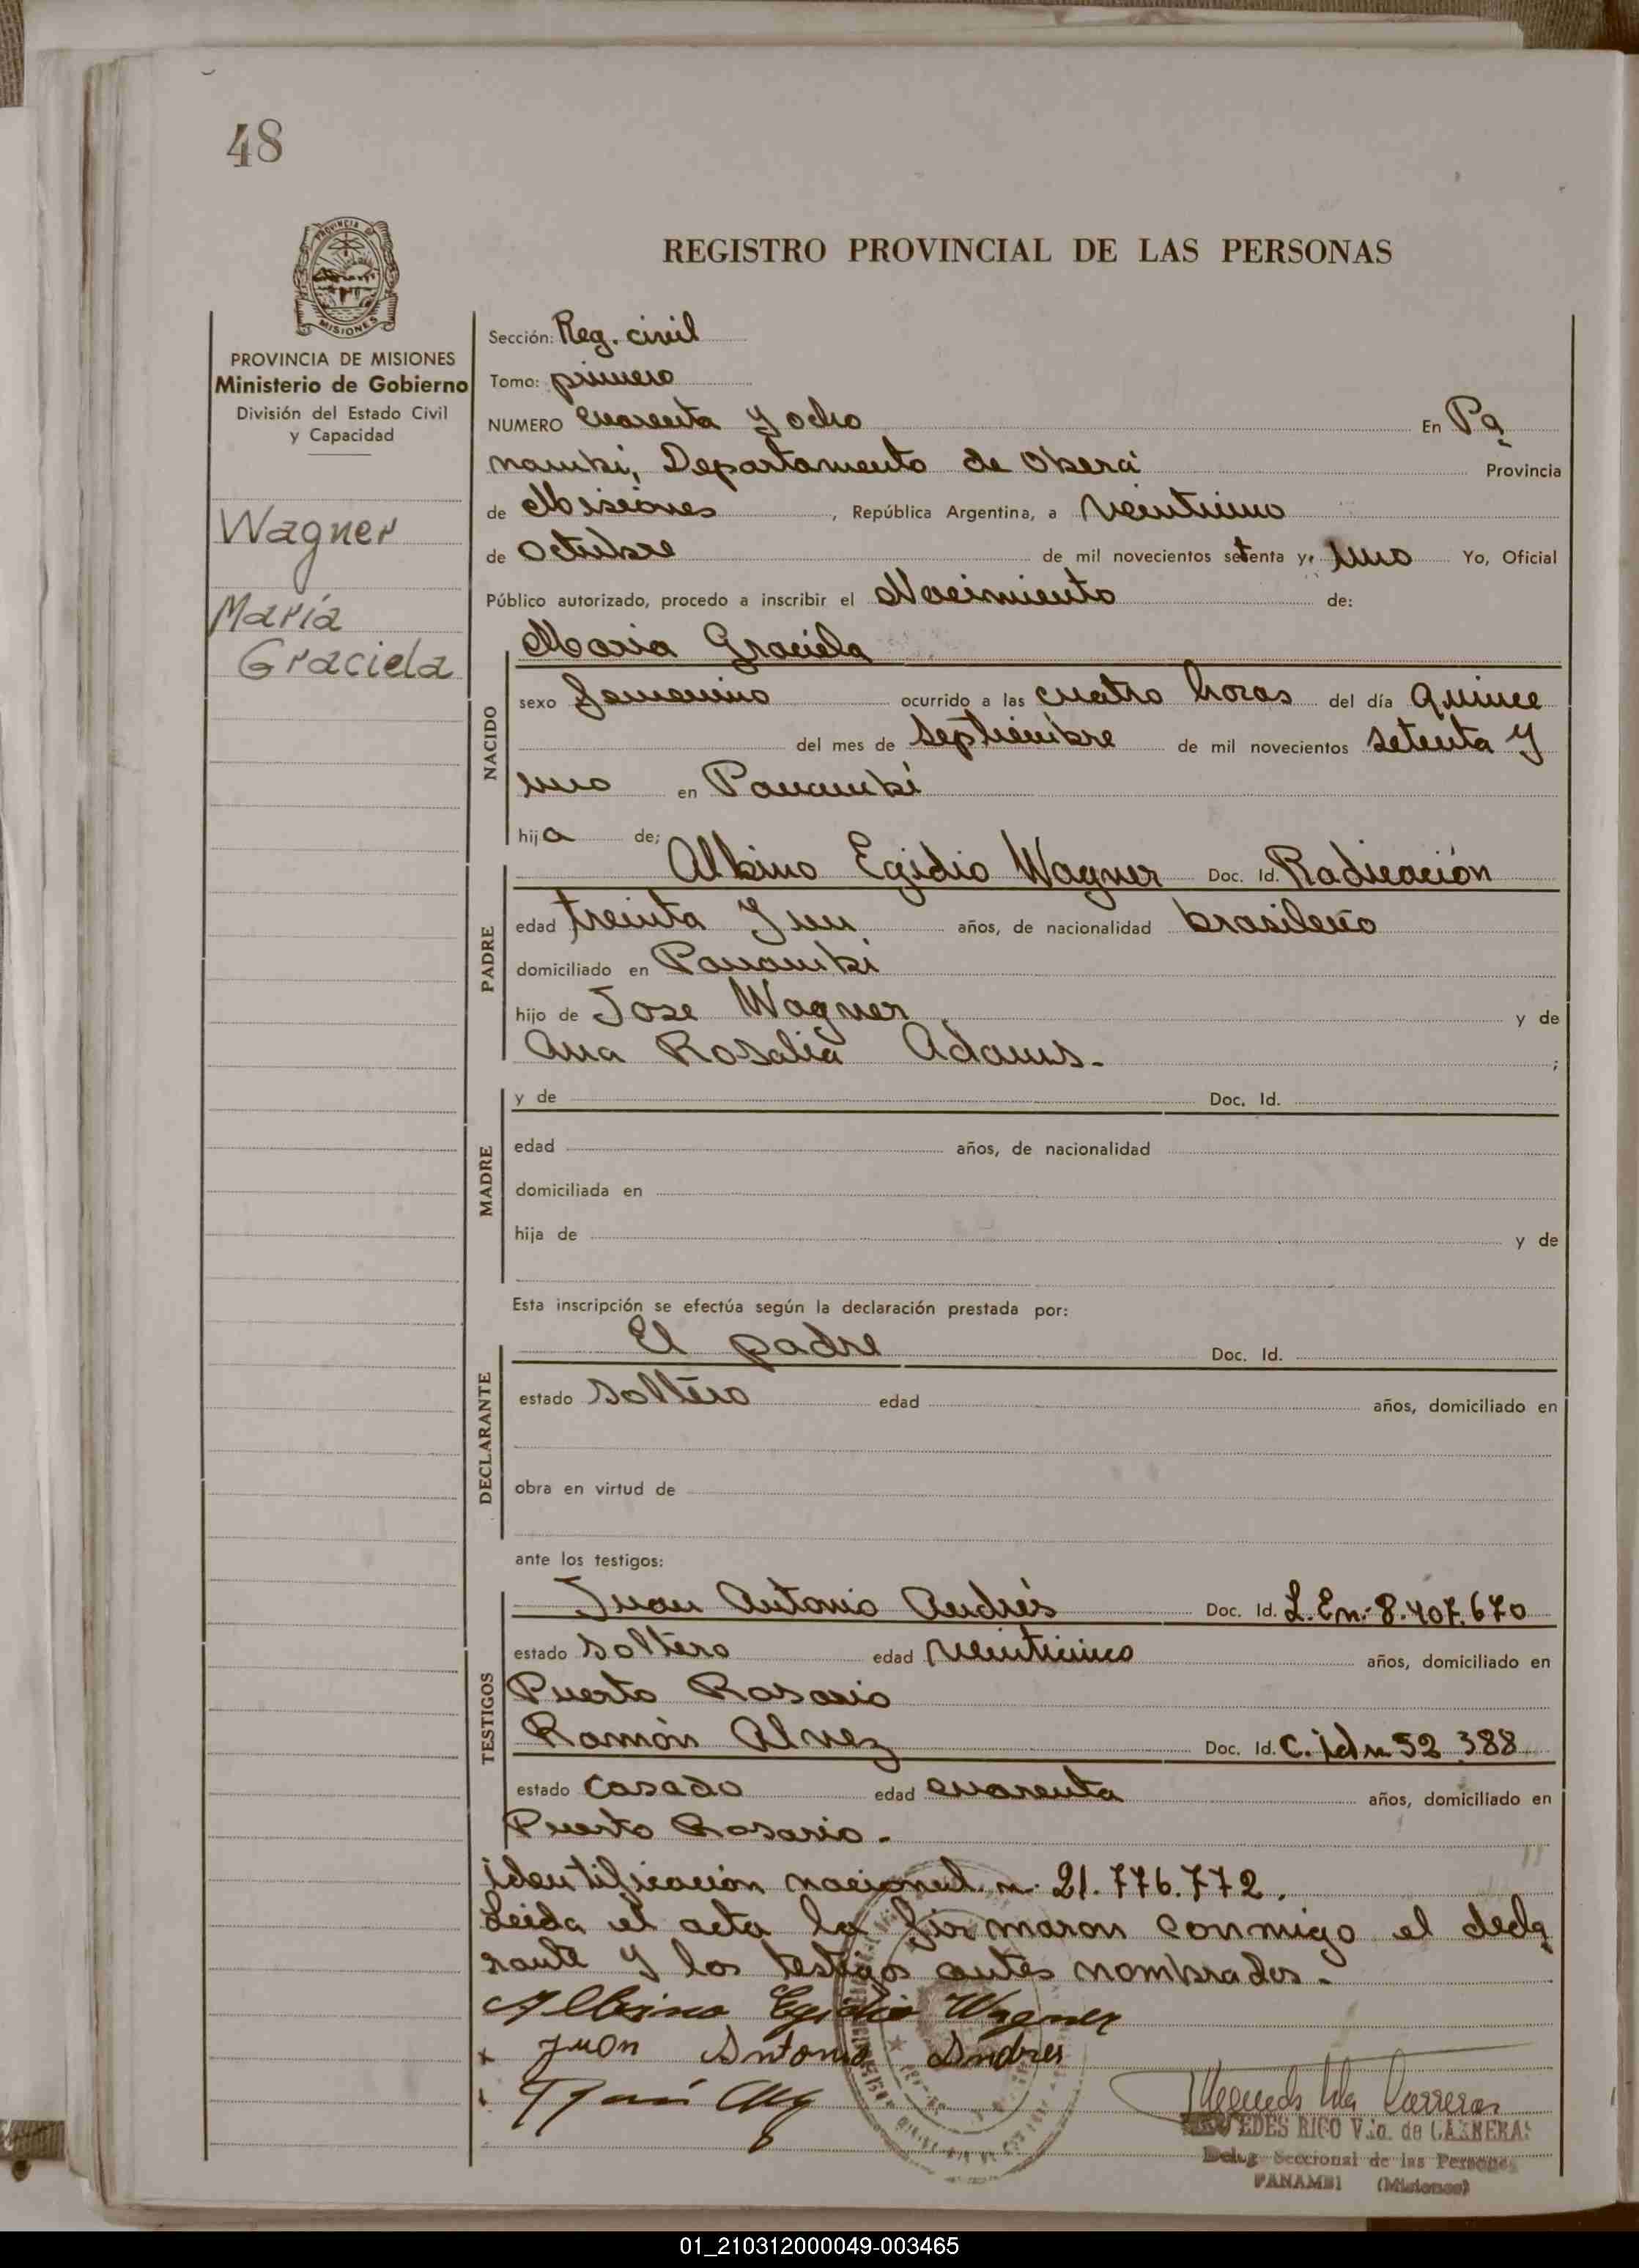 48
PROVINCIA DE
MISIONES
REGISTRO PROVINCIAL DE LAS PERSONAS
PROVINCIA DE MISIONES
Ministerio de Gobierno
División del Estado Civil
y Capacidad
Wagner
María
Graciela
Sección: Reg. civil
Tomo: primero
NUMERO cuarenta y ocho En Pa
nambí, Departamento de Oberá Provincia
de Misiones, República Argentina, a veintiuno
de Octubre de mil novecientos setenta y uno Yo, Oficial
Público autorizado, procedo a inscribir el Nacimiento de:
NACIDO
Maria Graciela
sexo femenino ocurrido a las cuatro horas del día quince
del mes de septiembre de mil novecientos setenta y
uno en Panambí
hija de;
PADRE
Albino Egidio Wagner Doc. Id. Radicación
edad treinta y un años, de nacionalidad brasileño
domiciliado en Panambi
hijo de Jose Wagner y de
Ana Rosalia Adams.- ;
MADRE
y de Doc. Id.
edad años, de nacionalidad
domiciliada en
hija de y de
Esta inscripción se efectúa según la declaración prestada por:
DECLARANTE
El padre Doc. Id.
estado soltero edad años, domiciliado en
obra en virtud de
ante los testigos:
TESTIGOS
Juan Antonio Andrés Doc. Id. L. En. 8.407.670
estado soltero edad veinticinco años, domiciliado en
Puerto Rosario
Ramón Alvez Doc. Id. C. id n 52.388
estado casado edad cuarenta años, domiciliado en
Puerto Rosario.-
identificación nacional n. 21.776.772.
Leida el acta la firmaron conmigo el decla
rante y los testigos antes nombrados.-
Albino Egidio Wagner
x Juan Antonio Andres
MERCEDES RIGO Vda. de CARRERAS
Deleg. Seccional de las Personas
PANAMBI (Misiones)
01_210312000049-003465